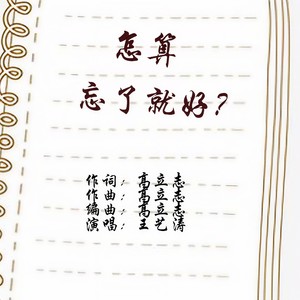 怎算
忘了就好?
作词：高立志
作曲：高立志
编曲：高立志
演唱：王艺涛